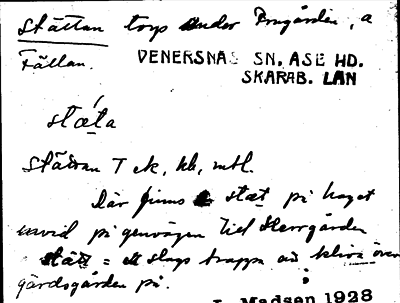 Stättan torp under Brogården, a
Fällan.
VENERSNÄS SN. ÅSE HD.
SKARAB. LÄN
stǽta
Stättan T ek, kb, mtl.
Där finns stæt på haget
invid på genvägen till Herrgården
stätt = ett slags trappa att kliva över
gärdsgården på.
L. Madsen 1928